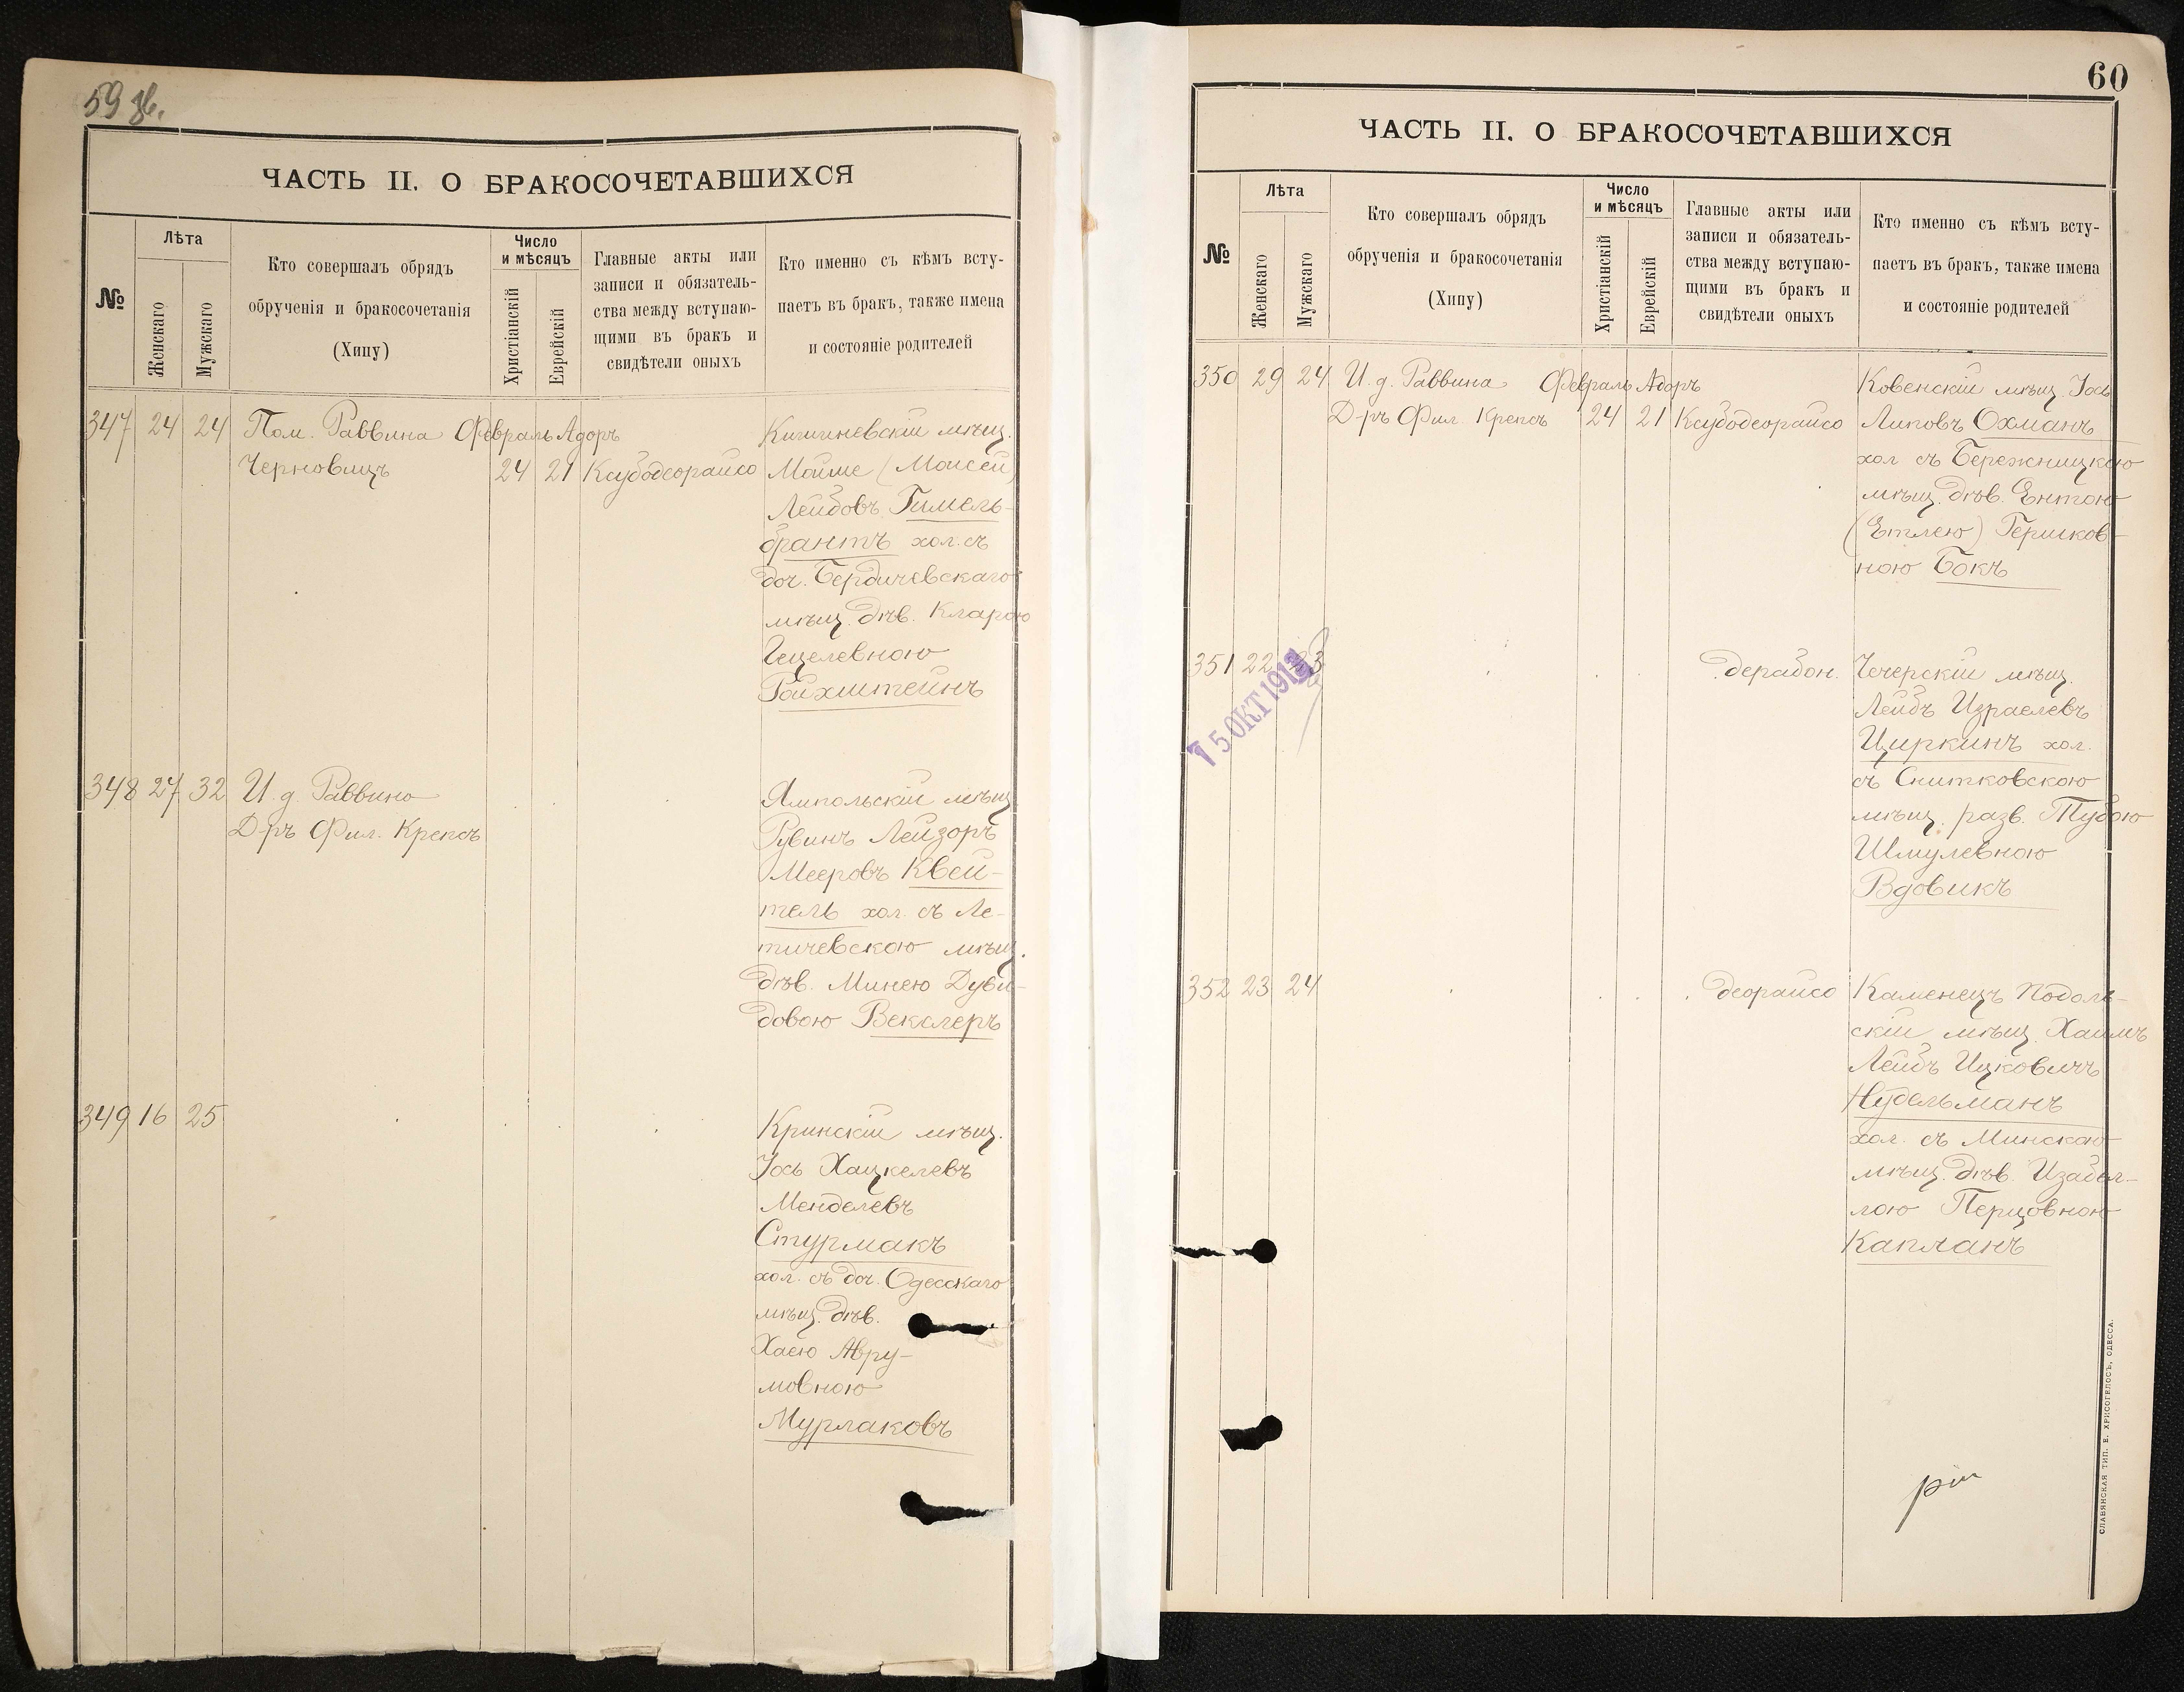 59 зв.
ЧАСТЬ II. О БРАКОСОЧЕТАВШИХСЯ
№
Лѣта
Женскаго
Мужскаго
Кто совершалъ обрядъ
обрученія и бракосочетанія
(Хипу)
Число
и мѣсяцъ
Христіанскій
Еврейскій
Главные акты или
записи и обязатель-
ства между вступаю-
щими въ бракъ и
свидѣтели оныхъ
Кто именно съ кѣмъ всту-
паетъ въ бракъ, также имена
и состояніе родителей
347 24 24 Пом. Раввина Февраль Адоръ Кишиневскій мѣщ.
Черновицъ 24 21 Ксубодеорайсо Мойше (Моисей)
Лейбовъ Гимель-
франтъ хол. съ
доч. Бердичевскаго
мѣщ. дѣв. Кларою
Гецелевною
Ройхштейнъ
348 27 32 И. д. Раввина Ямпольскій мѣщ.
Д-ръ Фил. Крепсъ Рувинъ Лейзоръ
Мееровъ Квей-
тель хол. съ Ле-
тичевскою мѣщ.
дѣв. Минею Дуви-
довою Векслеръ
349 16 25 Кринскій мѣщ.
Іось Хацкелевъ
Менделевъ
Стурмакъ
хол. съ доч. Одесскаго
мѣщ. дѣв.
Хаею Авру-
мовною
Мурлаковъ
60
ЧАСТЬ II. О БРАКОСОЧЕТАВШИХСЯ
№
Лѣта
Женскаго
Мужскаго
Кто совершалъ обрядъ
обрученія и бракосочетанія
(Хипу)
Число
и мѣсяцъ
Христіанскій
Еврейскій
Главные акты или
записи и обязатель-
ства между вступаю-
щими въ бракъ и
свидѣтели оныхъ
Кто именно съ кѣмъ всту-
паетъ въ бракъ, также имена
и состояніе родителей
350 29 24 И. д. Раввина Февраль Адоръ Ковенскій мѣщ. Іось
Д-ръ Фил. Крепсъ 24 21 Ксубодеорайсо Липовъ Охманъ
хол съ Бережницкою
мѣщ. дѣв. Ентою
(Етлею) Гершков-
ною Бокъ
351 22 23 дерабон. Чечерскій мѣщ.
Лейбъ Израелевъ
15 ОКТ 1913
Циркинъ хол.
съ Снитковскою
мѣщ. разв. Тубою
Шмулевною
Вдовикъ
352 23 24 деорайсо Каменецъ Подоль-
скій мѣщ. Хаимъ
Лейбъ Ицковичъ
Нудельманъ
хол. съ Минскою
мѣщ. дѣв. Изабел-
лою Перцовною
Капланъ
СЛАВЯНСКАЯ ТИП. Е. ХРИСОГЕЛОСЪ, ОДЕССА.